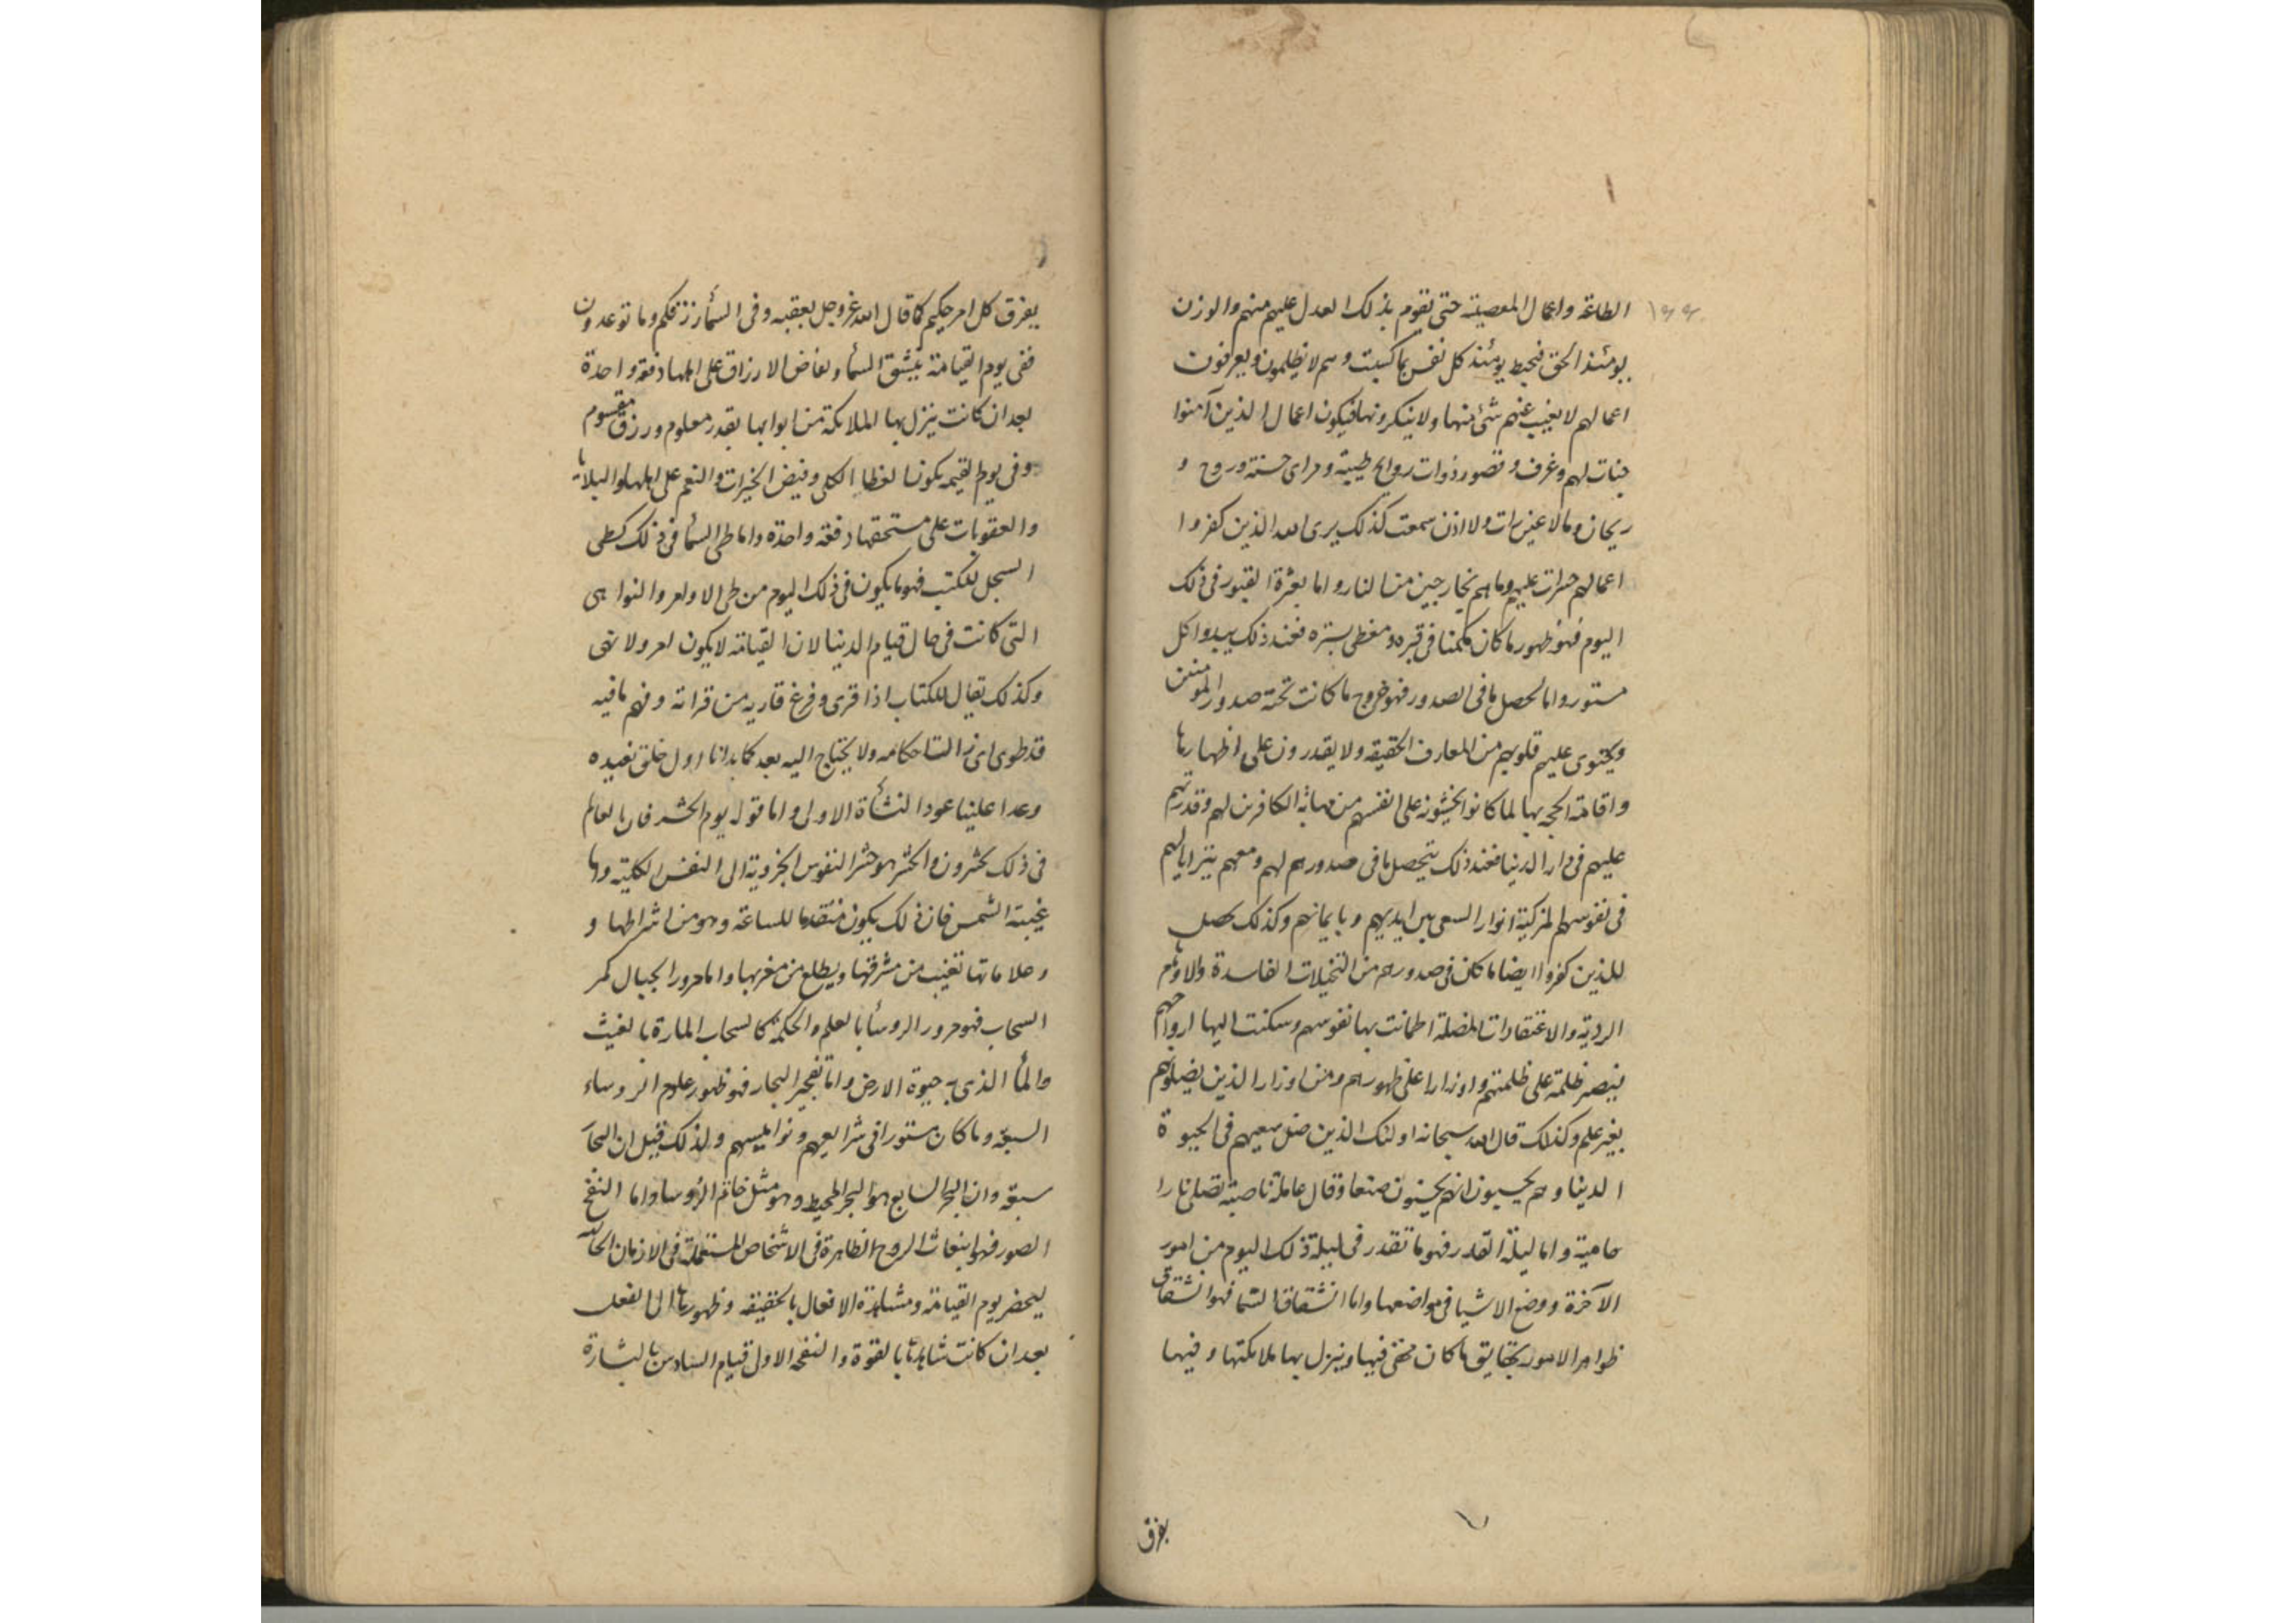 ١٩٩
الطاعة واعمال المعصية حتى تقوم بذلك العدل عليهم منهم والوزن
يومئذ الحق فيحيط يومئذ كل نفس بما كسبت وهم لا يظلمون ويعرفون
اعمالهم لا يغيب عنهم شئ منها ولا ينكرونها فيكون اعمال الذين آمنوا
جنات لهم وغرف وقصور ذوات روايح طيبة ومراى حسنة وروح و
ريحان وما لا عين رات ولا اذن سمعت كذلك يرى الله الذين كفروا
اعمالهم حسرات عليهم وما هم بخارجين من النار واما بعثرة القبور فى ذلك
اليوم فهو ظهور ما كان مكمنا فى قبره ومغطى بستره فعند ذلك يبدوا كل
مستور واما تحصل ما فى الصدور فهو خروج ما كانت تحته صدور المومنين
ويحتوى عليهم قلوبهم من المعارف الحقيقه ولا يقدرون على اظهارها
واقامة الحجه بها لما كانوا يخشونه على انفسهم من مهابة الكافرين لهم وقدرتهم
عليهم فى دار الدنيا فعند ذلك يتحصل ما فى صدورهم لهم ومعهم يتزايا لهم
فى نفوسهم المزكية انوار السعى بين ايديهم وبايمانهم وكذلك يحصل
للذين كفروا ايضا ما كان فى صدورهم من التخيلات الفاسدة والاوهام
الردية والاعتقادات المضلة اطمانت بها نفوسهم وسكنت اليها ارواحهم
فيصير ظلمة على ظلمتهم واوزارا على ظهورهم ومن اوزار الذين يضلونهم
بغير علم وكذلك قال الله سبحانه اولئك الذين ضل سعيهم فى الحيوة
الدنيا وهم يحسبون انهم يحسنون صنعا وقال عاملة ناصبة تصلى نارا
حامية واما ليلة القدر فهو ما تقدر فى ليلة ذلك اليوم من امور
الآخرة ووضع الاشيا فى مواضعها واما انشقاق السما فهو انشقاق
ظواهر الامور بحقايق ما كان مخفى فيها وينزل بها ملايكتها وفيها
يفرق
يفرق كل امر حكيم كما قال الله عز وجل بعقبه وفى السمأ رزقكم وما توعدون
ففى يوم القيامة ينشق السمأ وتفاض الارزاق على اهلها دفعة واحدة
بعد ان كانت ينزل بها الملايكة من ابوابها بقدر معلوم ورزق مقسوم
وفى يوم القيمه يكون العطا الكلى وفيض الخيرات والنعم على اهلها والبليات
والعقوبات على مستحقها دفعة واحدة واما طى السمأ فى ذلك كطى
السجل للكتب فهو ما يكون فى ذلك اليوم من طى الاوامر والنواهى
التى كانت فى حال قيام الدنيا لان القيامة لا يكون امر ولا نهى
وكذلك يقال للكتاب اذا قرى وفرغ قاريه من قراته وفهم ما فيه
قد طوى اى زالت احكامه ولا يحتاج اليه بعد كما بدانا اول خلق نعيده
وعدا علينا عود النشأة الاولى واما قوله يوم الحشر فان العالم
فى ذلك يحشرون والحشر هو حشر النفوس الجزوية الى النفس الكلية واما
غيبة الشمس فان ذلك يكون متقدما للساعة وهو من اشراطها و
وعلاماتها تغيب من مشرقها ويطلع من مغربها واما مرور الجبال كمر
السحاب فهو مرور الروسأ بالعلم والحكمة كالسحاب المارة بالغيث
والمأ الذى به حيوة الارض واما تفجير البحار فهو ظهور علوم الروساء
السبعة وما كان مستورا فى شرايعهم ونواميسهم ولذلك قيل ان البحار
سبعة وان البحر السابع هو البحر المحيط وهو مثل خاتم الروسا واما النفخ
الصور فهو انبعاث الروح الطاهرة فى الاشخاص المستعملة فى الازمان الخالية
ليحضر يوم القيامة ومشاهدة الافعال بالحقيقه وظهورها الى الفعل
بعد ان كانت شاهدتها بالقوة والنفخه الاولى قيام السادس بالبشارة